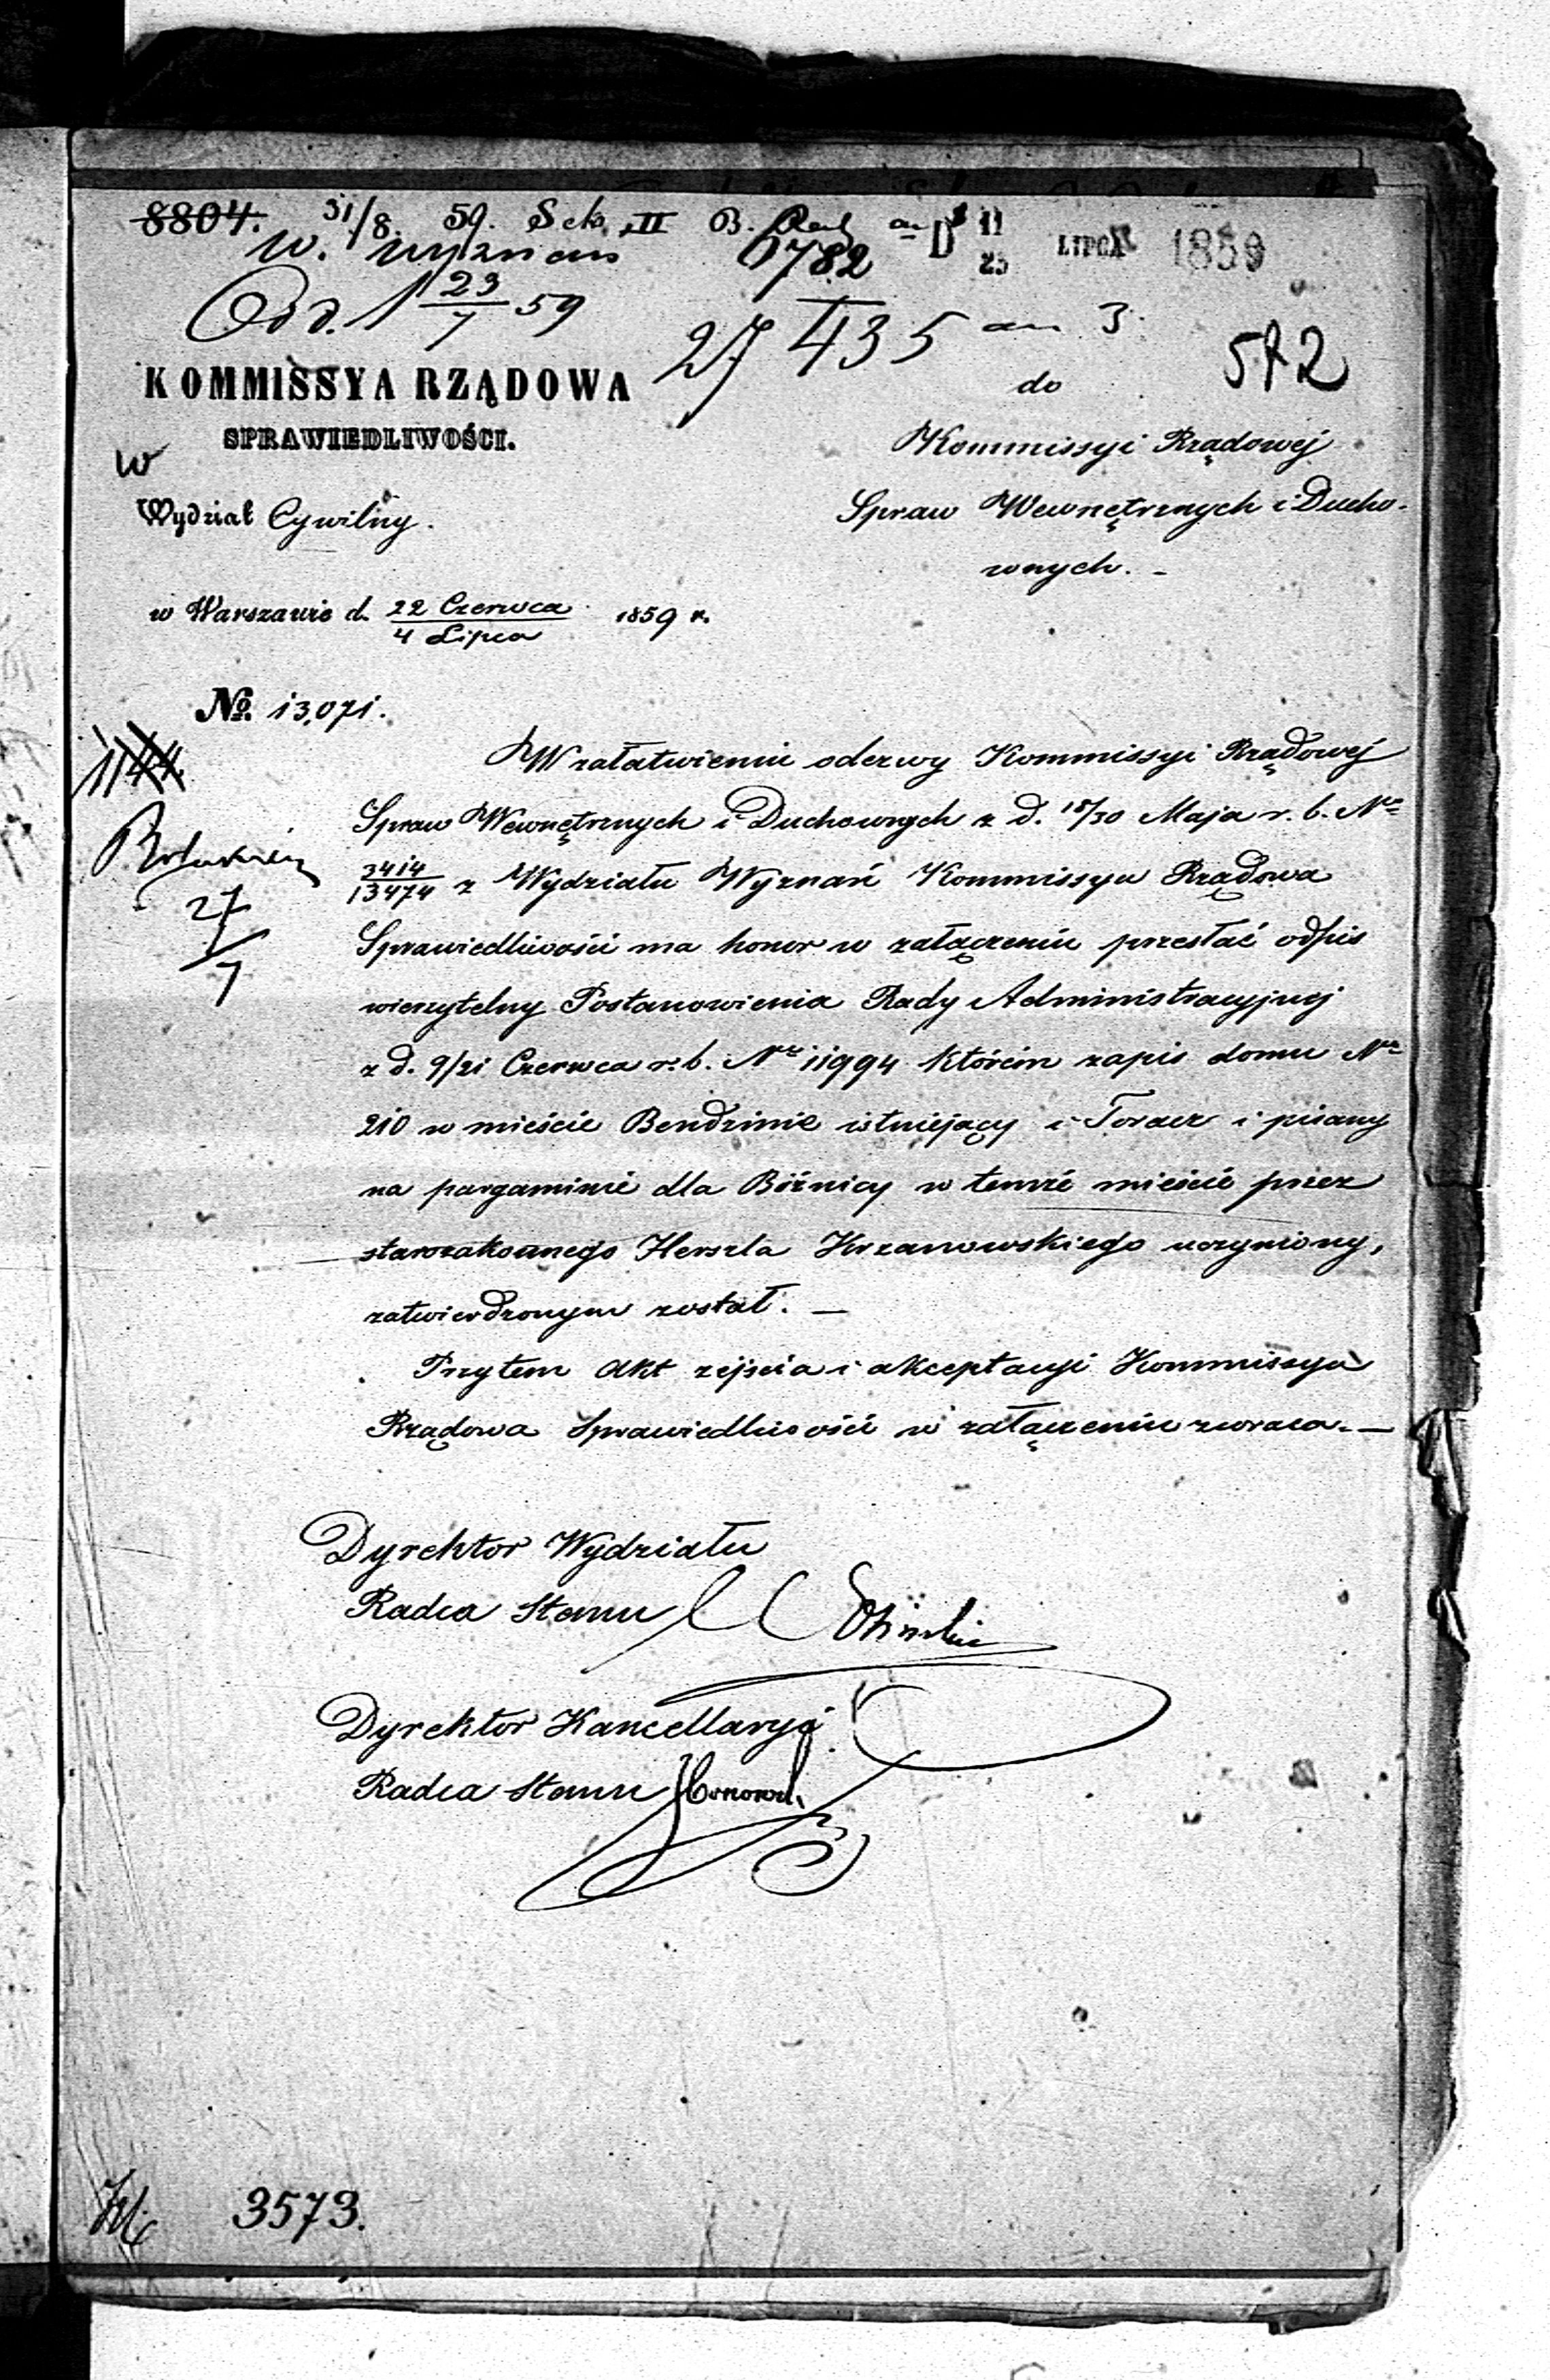 8804. 31/8. 59. Sek. II B.
W. Wyznań 6782 D 11/23 LIPCA 1859
Odd. 1 23/7 59
27435 an 3.
572
KOMMISSYA RZĄDOWA
SPRAWIEDLIWOŚCI.
do
Kommissyi Rządowej
w
Wydział Cywilny.
Spraw Wewnętrznych i Ducho-
wnych. -
w Warszawie d. 22 Czerwca/4 Lipca 1859 r.
No. 13,071.
1144.
W załatwieniu odezwy Kommissyi Rządowej
Spraw Wewnętrznych i Duchownych z d. 18/30 Maja r. b. Nr
3414/13474 z Wydziału Wyznań Kommissya Rządowa
27/7
Sprawiedliwości ma honor w załączeniu przesłać odpis
wierzytelny Postanowienia Rady Administracyjnej
z d. 9/21 Czerwca r. b. Nr 11994 którém zapis domu Nr
210 w mieście Bendzinie istniejący i Toraer i pisany
na pargaminie dla Bóżnicy w temże mieście przez
starozakonnego Herszla Krzanowskiego uczyniony,
zatwierdzonym został. —
Przytem Akt zejścia i akceptacyi Kommissya
Rządowa Sprawiedliwości w załączeniu zwraca. —
Dyrektor Wydziału
Radca Stanu
Dyrektor Kancellaryi
Radca Stanu
3573.